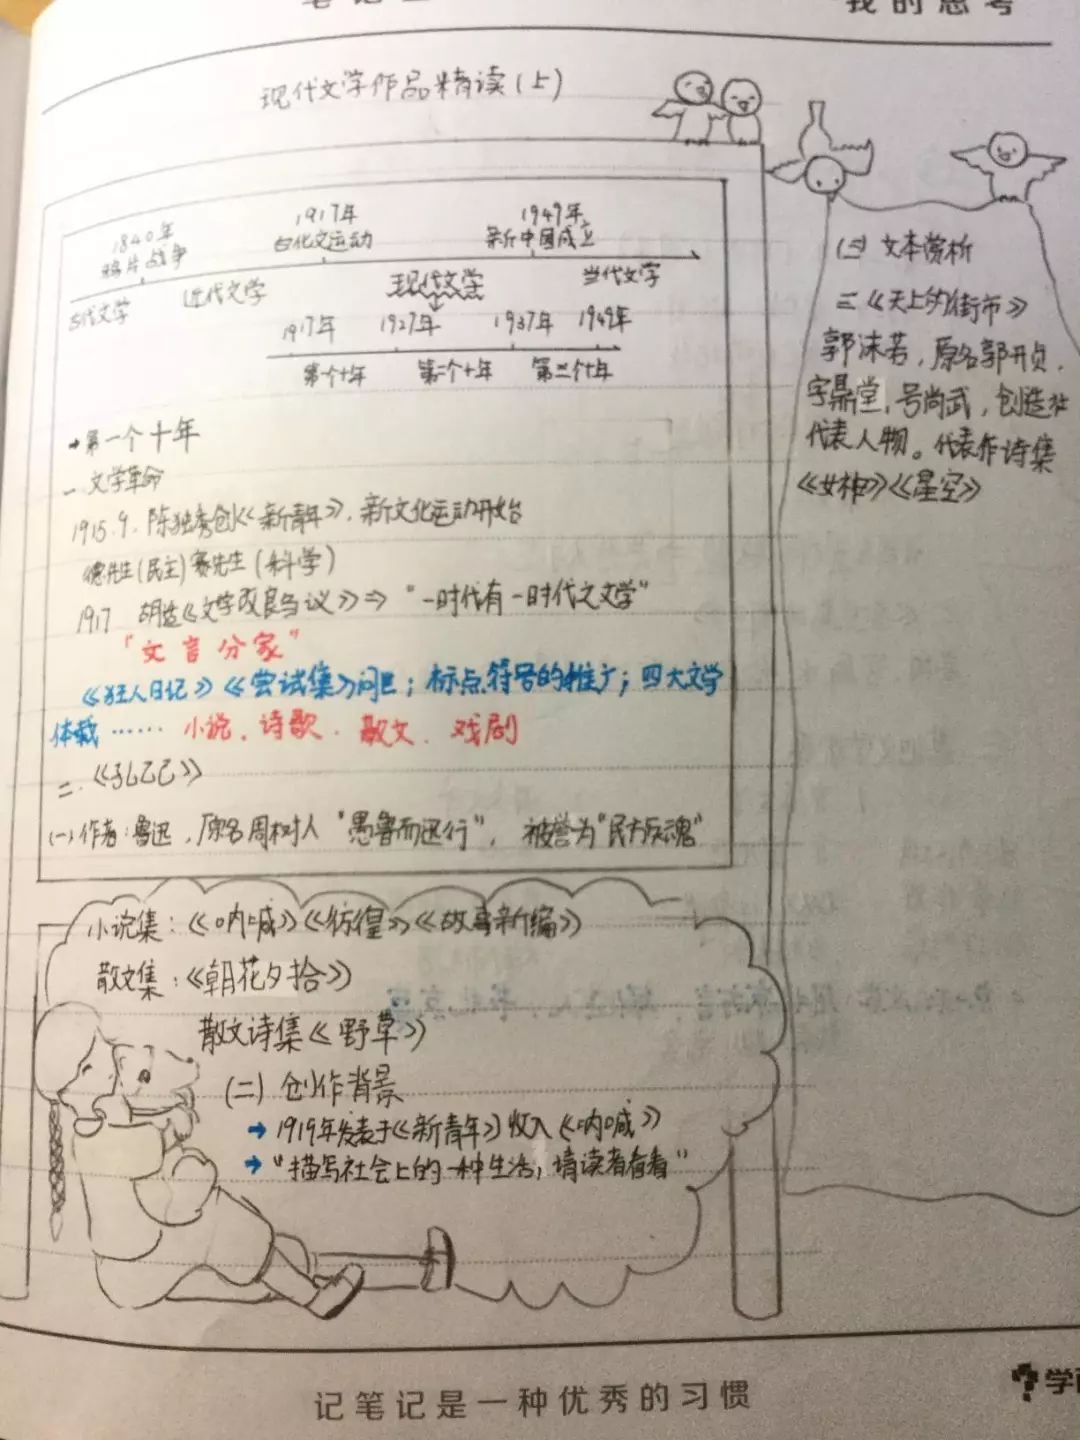 我的思考
现代文学作品精读(上)
1840年 1917年 1949年
鸦片战争 白化文运动 新中国成立
古代文学 近代文学 现代文学 当代文学
1917年 1927年 1937年 1949年
第一个十年 第二个十年 第三个十年
→第一个十年
一.文学革命
1915.9.陈独秀创《新青年》.新文化运动开始
德先生(民主)赛先生(科学)
1917 胡适《文学改良刍议》⇒"一时代有一时代之文学"
"文言分家"
《狂人日记》《尝试集》问世;标点符号的推广;四大文学
体裁……小说.诗歌.散文.戏剧
二.《孔乙己》
(一)作者:鲁迅,原名周树人"愚鲁而迅行",被誉为"民族魂"
小说集:《呐喊》《彷徨》《故事新编》
散文集:《朝花夕拾》
散文诗集《野草》
(二)创作背景
→1919年发表于《新青年》收入《呐喊》
→"描写社会上的一种生活,请读者看看"
文本赏析
三《天上的街市》
郭沫若,原名郭开贞,
字鼎堂,号尚武,创造社
代表人物。代表作诗集
《女神》《星空》
记笔记是一种优秀的习惯